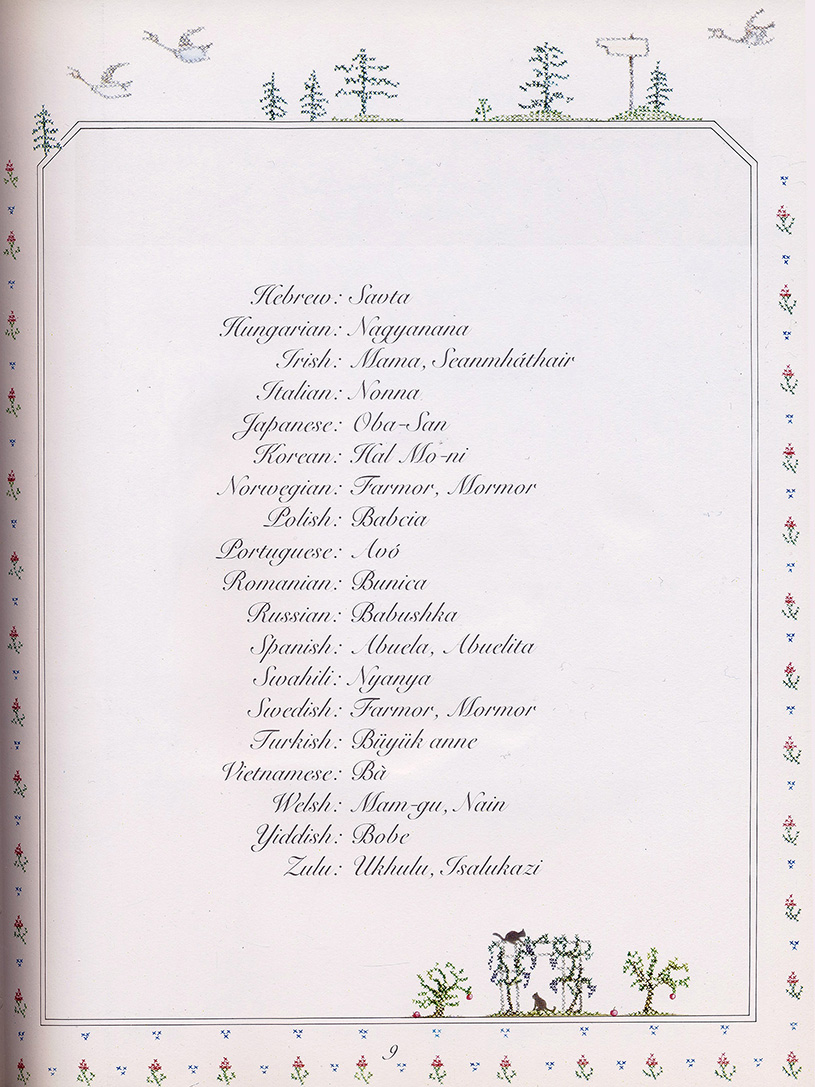 Hebrew: Savta
Hungarian: Nagyanana
Irish: Mama, Seanmháthair
Italian: Nonna
Japanese: Oba-San
Korean: Hal Mo-ni
Norwegian: Farmor, Mormor
Polish: Babcia
Portuguese: Avó
Romanian: Bunica
Russian: Babushka
Spanish: Abuela, Abuelita
Swahili: Nyanya
Swedish: Farmor, Mormor
Turkish: Büyük anne
Vietnamese: Bà
Welsh: Mam-gu, Nain
Yiddish: Bobe
Zulu: Ukhulu, Isalukazi
9